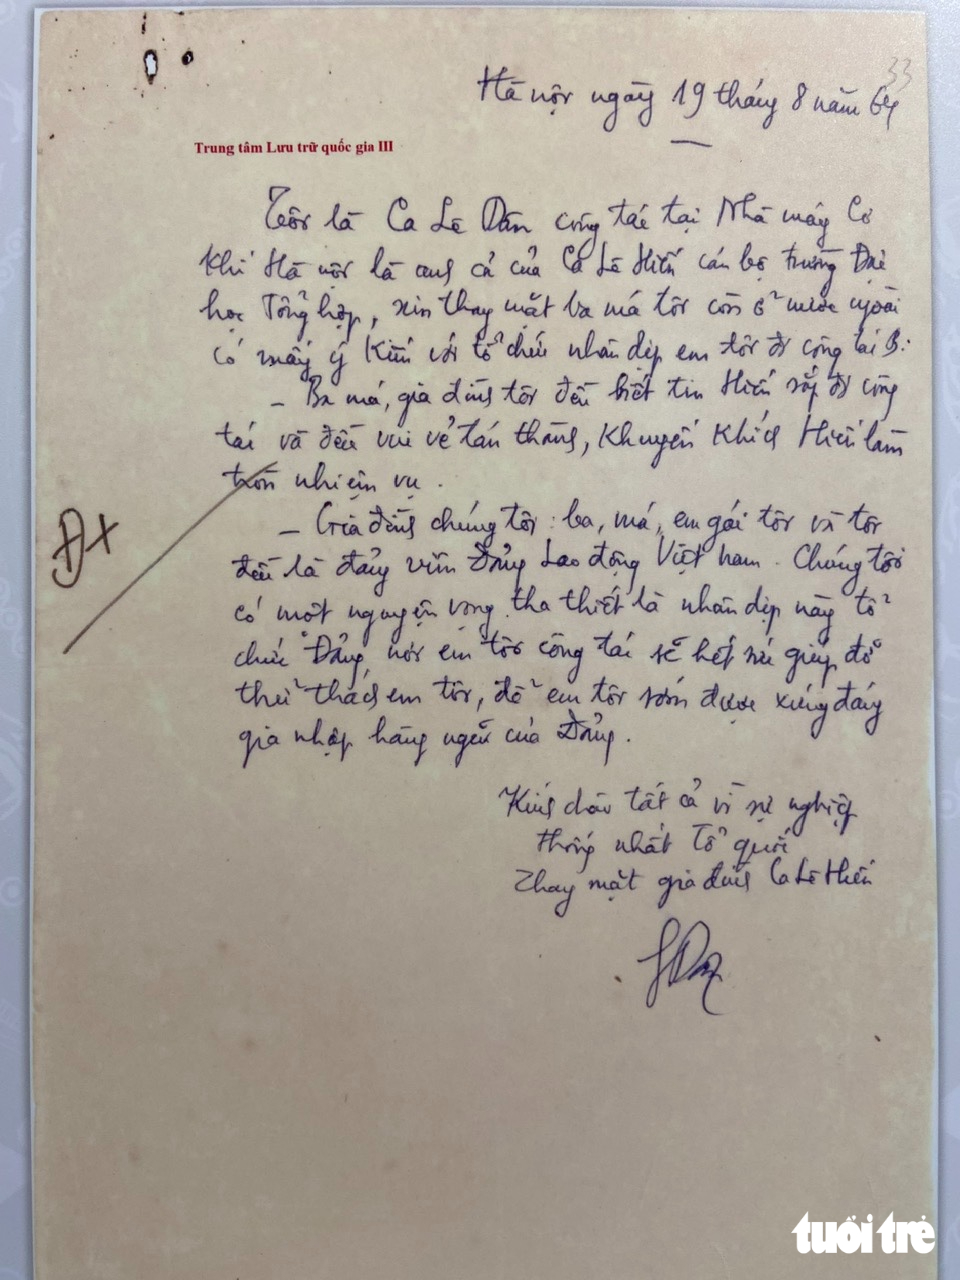 33
Hà nội ngày 19 tháng 8 năm 64
Trung tâm Lưu trữ quốc gia III
Tôi là Ca Lê Dân công tác tại Nhà máy Cơ
Khí Hà nội là anh cả của Ca Lê Hiến cán bộ trường Đại
học Tổng hợp, xin thay mặt ba má tôi còn ở nước ngoài
có mấy ý kiến với tổ chức nhân dịp em tôi đi công tác B:
- Ba má, gia đình tôi đều biết tin Hiến sắp đi công
tác và đều vui vẻ tán thành, khuyến khích Hiến làm
tròn nhiệm vụ.
- Gia đình chúng tôi: ba, má, em gái tôi và tôi
đều là đảng viên Đảng Lao động Việt nam. Chúng tôi
có một nguyện vọng tha thiết là nhân dịp này tổ
chức Đảng nơi em tôi công tác sẽ hết sức giúp đỡ
thử thách em tôi, để em tôi sớm được xứng đáng
gia nhập hàng ngũ của Đảng.
Đx
Kính chào tất cả vì sự nghiệp
thống nhất Tổ quốc
Thay mặt gia đình Ca Lê Hiến
tuổi trẻ